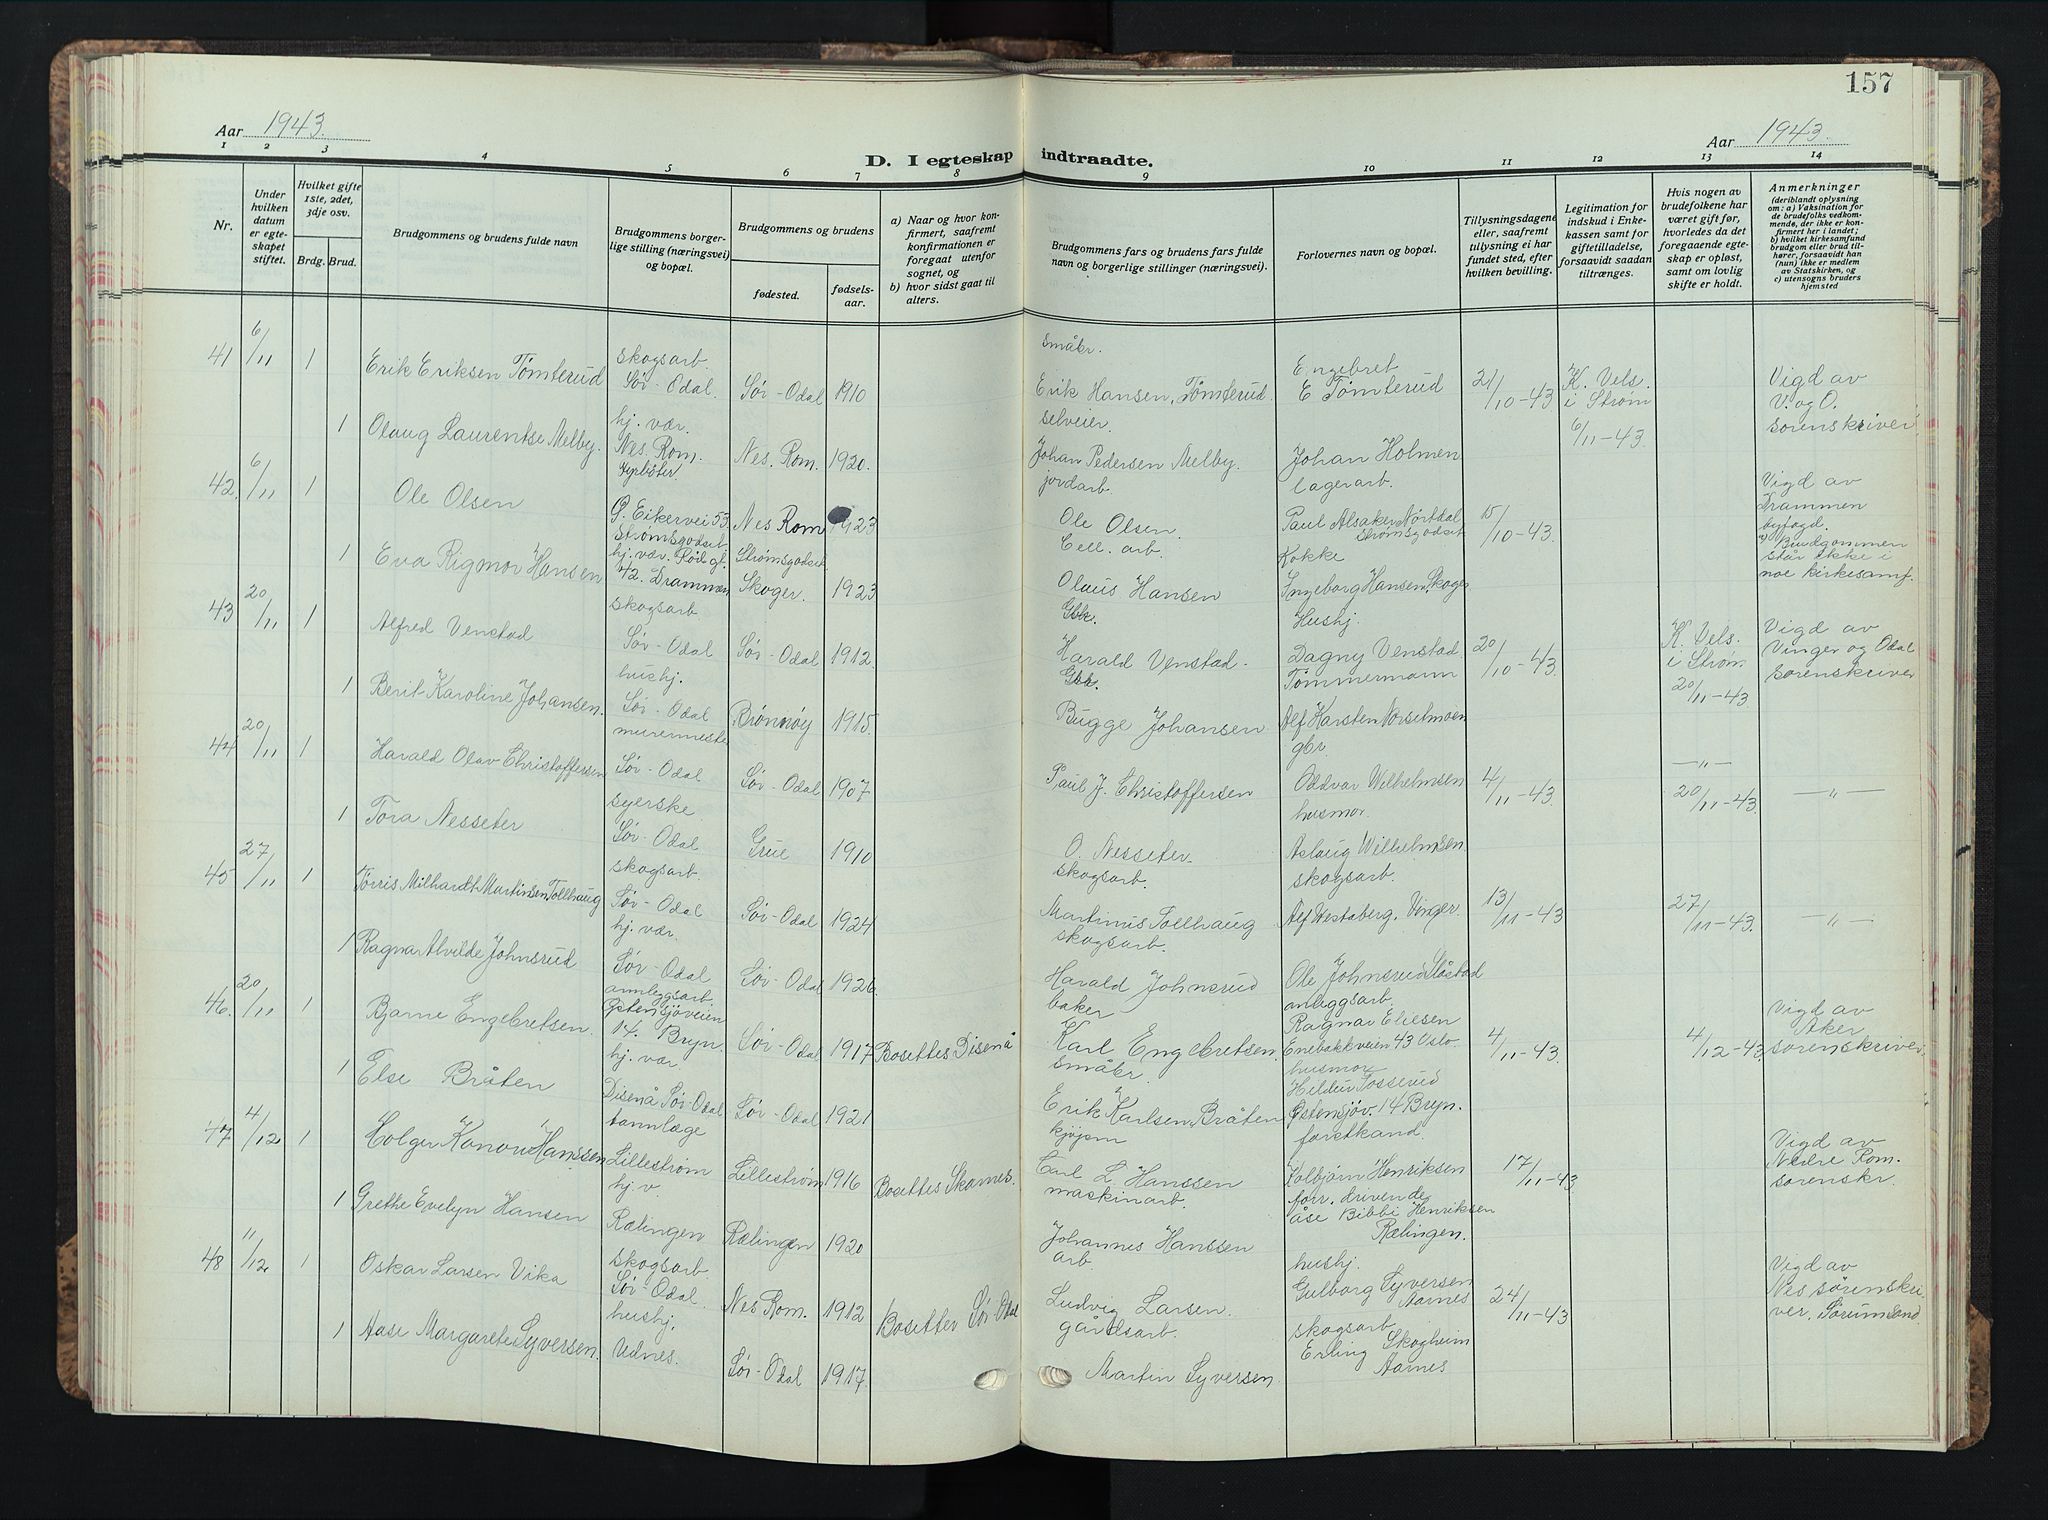 157
Aar 1943.
Aar 1943.
D. I egteskap indtraadte.
1 2 3 4 5 6 7 8 9 10 11 12 13 14
Nr.
Under hvilken datum er egteskapet stiftet.
Hvilket gifte 1ste, 2det, 3dje osv.
Brdg. Brud.
Brudgommens og brudens fulde navn
Brudgommens borgerlige stilling (næringsvei) og bopæl.
Brudgommens og brudens
fødested.
fødselsaar.
a) Naar og hvor konfirmert, saafremt konfirmationen er foregaat utenfor sognet, og
b) hvor sidst gaat til alters.
Brudgommens fars og brudens fars fulde navn og borgerlige stillinger (næringsvei).
Forlovernes navn og bopæl.
Tillysningsdagene eller, saafremt tillysning ei har fundet sted, efter hvilken bevilling.
Legitimation for indskud i Enkekassen samt for giftetilladelse, forsaavidt saadan tiltrænges.
Hvis nogen av brudefolkene har været gift før, hvorledes da det foregaaende egteskap er opløst, samt om lovlig skifte er holdt.
Anmerkninger
(deriblandt oplysning om: a) Vaksination for de brudefolks vedkommende, der ikke er konfirmert her i landet; b) hvilket kirkesamfund brudgom eller brud tilhører, forsaavidt han (hun) ikke er medlem av Statskirken, og c) utensogns bruders hjemsted
41 6/11 1 Erik Eriksen Tømterud skogsarb. Sør-Odal. Sør-Odal 1910 småbr. Erik Hansen, Tømterud. Engebret E Tømterud 21/10-43 K. Vels. i Strøm 6/11-43 Vigd av V. og O. sorenskriver
1 Olaug Laurentse Melby. hj. vær. Nes. Rom. Nes. Rom. 1920. selveier. Johan Pedersen Melby. Johan Holmen
42. 6/11 1 Ole Olsen G. Eikervei 53 Strømsgodset Nes Rom 1923 jordarb. Ole Olsen. lagerarb. Paul Alsaker Nørtdal Strømsgodset 15/10-43. Vigd av Drammen byfogd. Brudgommen står ikke i noe kirkesamf.
1 Eva Rigmor Hansen hj. vær. 42. Drammen Strømsgodset Skoger. 1923 Cell. arb. Olaus Hansen Kokke Ingeborg Hansen, Skoger
43 20/11 1 Alfred Venstad skogsarb. Sør-Odal Sør-Odal 1912. Gbr. Harald Venstad. Hushj. Dagny Venstad 20/10-43 K. Vels. i Strøm 20/11-43 Vigd av Vinger og Odal sorenskriver
1 Berit Karoline Johansen. hushj. Sør-Odal Brønnøy 1915. Gbr. Bugge Johansen Tømmermann Alf Karsten Norselmoen
44 20/11 1 Harald Olav Christoffersen murermester Sør-Odal Sør-Odal 1907 Paul J. Christoffersen gbr. Oddvar Wilhelmsen 4/11-43. —"— 20/11-43. —"—
1 Tora Nesseter syerske Sør-Odal Grue 1910 O. Nesseter. husmor. Aslaug Wilhelmsen
45 27/11 1 Tørris Milhardt Martinsen Tollhaug skogsarb. Sør-Odal Sør-Odal 1924 skogsarb. Martinus Tollhaug skogsarb. Alf Westaberg, Vinger. 13/11-43 27/11-43. —"—
1 Ragna Alvilde Johnsrud hj. vær. Sør-Odal Sør-Odal 1926. skogsarb. Harald Johnsrud Ole Johnsrud Slåstad
46. 20/11 1 Bjarne Engebretsen. anleggsarb. Østensjøveien 14. Bryn. Sør-Odal 1917 Bosettes Disenå baker Karl Engebretsen anleggsarb. Ragnar Eliesen Enebakkveien 43 Oslo. 4/11-43. 4/12-43. Vigd av Aker sorenskriver.
1 Else Bråten hj. vær. Disenå Sør-Odal Sør-Odal 1921 småbr. Erik Karlsen Bråten husmor Hildur Tosserud Østensjøv. 14 Bryn.
47 4/12 1 Holger Kanow Hanssen tannlæge Lillestrøm Lillestrøm 1916 Bosettes Skarnes. kjøpm Carl L. Hanssen forstkand. Kolbjørn Henriksen 17/11-43 Vigd av Nedre Rom. sorenskr.
1 Grethe Evelyn Hansen hj. v. Rælingen Rælingen 1920 maskinarb. Johannes Hanssen forr. drivende Åse Bibbi Henriksen Rælingen.
48 11/12. 1 Oskar Larsen Vika skogsarb. Sør-Odal. Nes Rom. 1912 Bosetter Sør-Odal arb. Ludvig Larsen. hushj. Gulborg Syversen Aarnes 24/11-43 Vigd av Nes sorenskriver, Sørumsand.
1 Aase Margarete Syversen. hushj. Udnes. Sør-Odal 1917. gårdsarb. Martin Syversen. skogsarb Erling Skogheim Aarnes